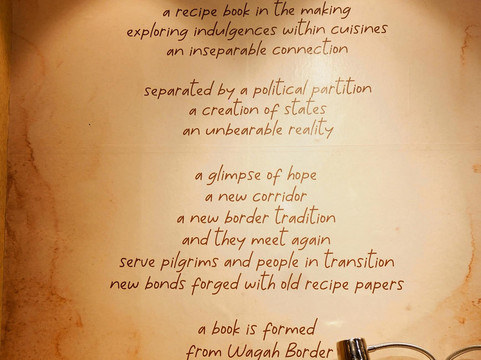 a recipe book in the making
exploring indulgences within cuisines
an inseparable connection
separated by a political partition
a creation of states
an unbearable reality
a glimpse of hope
a new corridor
a new border tradition
and they meet again
serve pilgrims and people in transition
new bonds forged with old recipe papers
a book is formed
from Wagah Border